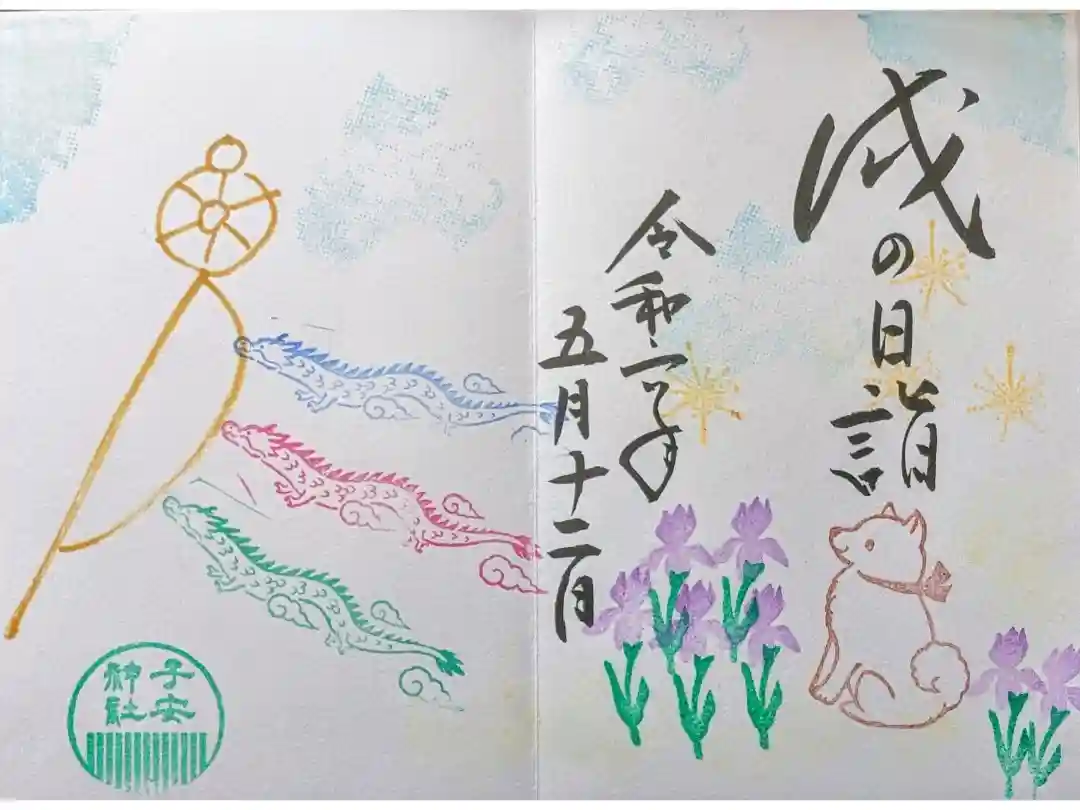 戌の日詣
令和六年
五月十二日
子安
神社